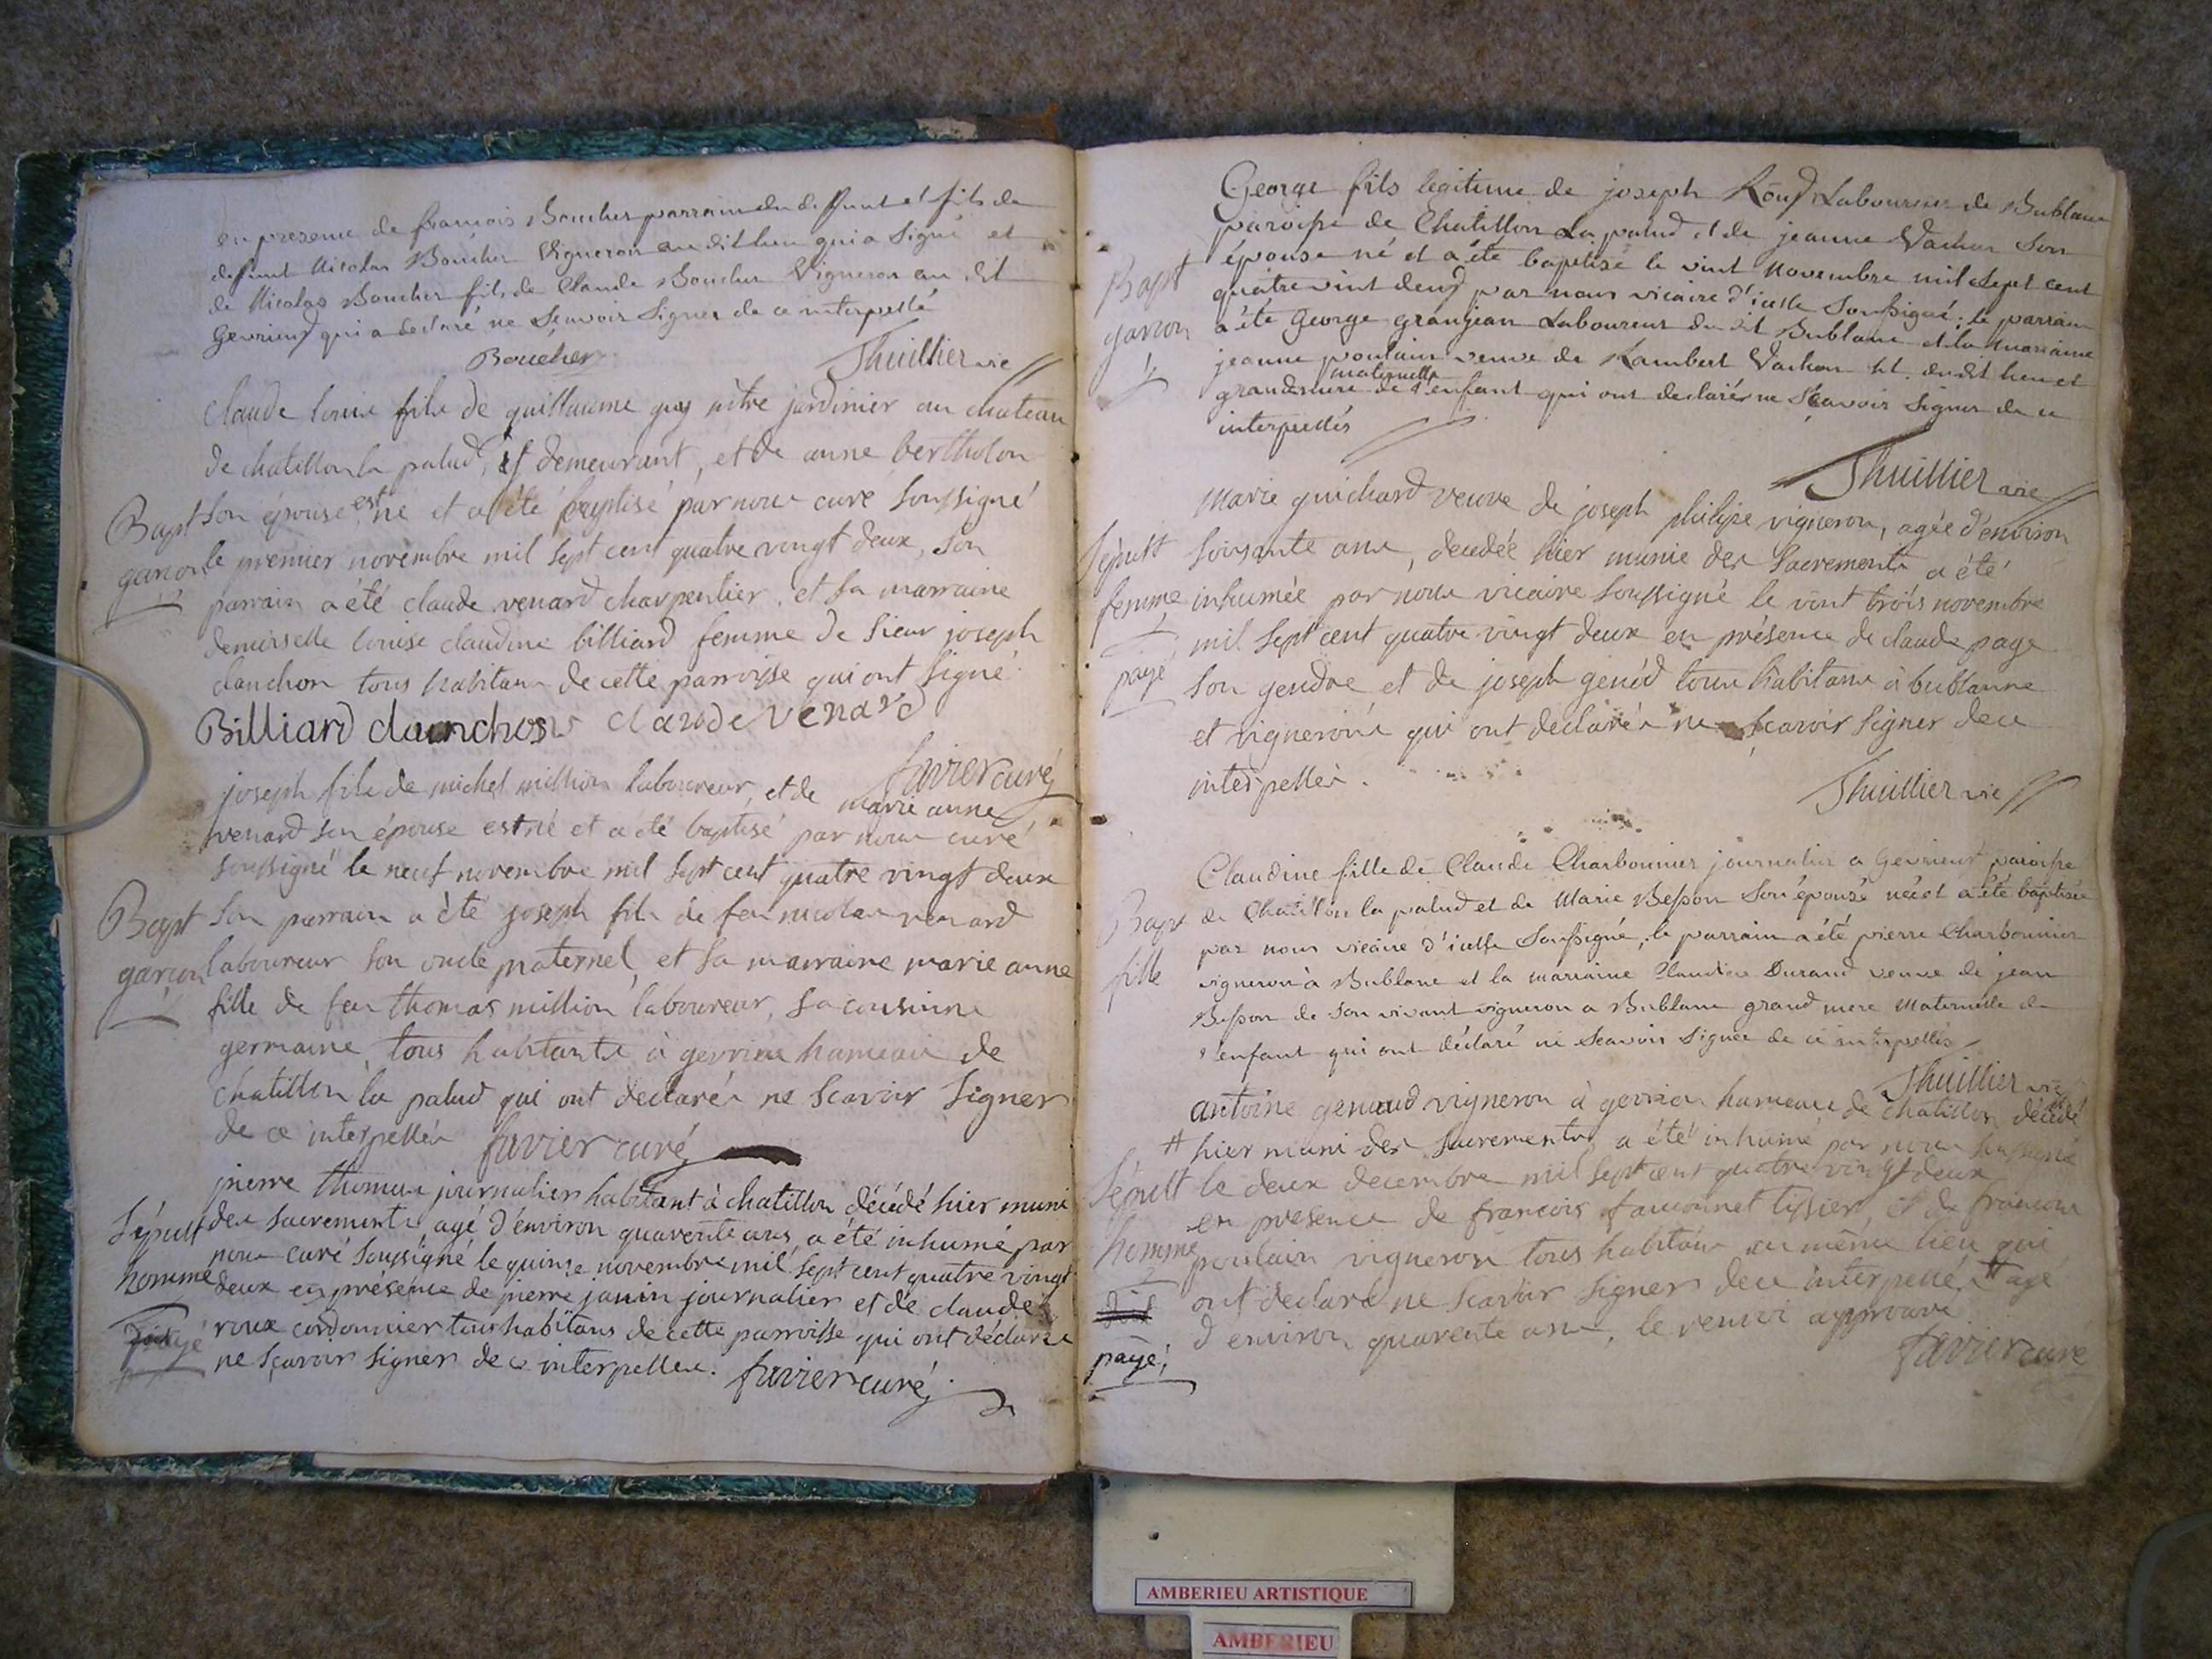 en presence de francois Boucher parrain du deffunt et fils de
defunt Nicolas Boucher Vigneron au dit lieu qui a signé et
de Nicolas Boucher fils de Claude Boucher Vigneron au dit
Gevrieux qui a declaré ne sçavoir signer de ce interpellé
Boucher Thuillier vic
claude louis fils de guillaume guy nôtre jardinier au chateau
de chatillon la palud, y demeurant, et de anne bertholon
Bapt son épouse est né et a été baptisé par nous curé soussigné
garcon le premier novembre mil sept cent quatre vingt deux, son
parrain a été claude venard charpentier, et sa marraine
demoiselle louise claudine billiard femme de sieur joseph
clanchon tous habitans de cette parroisse qui ont signé
Billiard clanchon claude venard
favier curé
joseph fils de michel million laboureur, et de marie anne
venard son épouse est né et a été baptisé par nous curé
soussigné le neuf novembre mil sept cent quatre vingt deux
Bapt son parrain a été joseph fils de feu nicolas venard
garcon laboureur son oncle maternel, et sa marraine marie anne
fille de feu thomas million laboureur, sa cousinne
germaine, tous habitants à gevrieux hameau de
chatillon la palud qui ont declarés ne scavoir signer
de ce interpellés favier curé
pierre thomas journalier habitant à chatillon décédé hier muni
Sépult des sacrements agé d'environ quarente ans, a été inhumé par
nous curé soussigné le quinze novembre mil sept cent quatre vingt
homme deux en présence de pierre janin journalier et de claude
payé roux cordonnier tous habitans de cette parroisse qui ont déclarés
ne sçavoir signer de ce interpelles. favier curé
George fils legitime de joseph Roux Laboureur de Bublane
paroisse de Chatillon La palud et de jeanne Vachon son
épouse né et a été baptisé le vint Novembre mil sept cent
Bapt quatre vint deux par nous vicaire d'icelle soussigné; le parrain
garcon a été George granjean Laboureur du dit Bublane et la marraine
jeanne poulain veuve de Lambert Vachon du dit lieu et
maternelle
grandmere de l'enfant qui ont declarés ne sçavoir signer de ce
interpellés
Thuillier vic
Marie guichard veuve de joseph philipe vigneron, agée d'environ
Sépult soixante ans, decedée hier munie des sacrements a été
femme inhumée par nous vicaire soussigné le vint trois novembre
mil sept cent quatre vingt deux en présence de claude page
payé son gendre et de joseph genod tous habitans à bublanne
et vignerons qui ont declarés ne scavoir signer de ce
interpellés.
Thuillier vic
Claudine fille de Claude Charbonnier journalier a Gevrieux paroisse
Bapt de Chatillon la palud et de Marie Besson son épouse née et a été baptisée
par nous vicaire d'icelle soussigné, le parrain a été pierre Charbonnier
fille vigneron à Bublane et la marraine Claudine Durand veuve de jean
Besson de son vivant vigneron a Bublane grand mere Maternelle de
l'enfant qui ont déclaré ne sçavoir signer de ce interpellés
Thuillier vic
antoine genaud vigneron à gevrieu hameau de chatillon décédé
# hier muni des sacrements a été inhumé par nous soussigné
Sépult le deux decembre mil sept cent quatre vingt deux
en presence de francois fauconnet tissier et de francois
homme poulain vigneron tous habitans au même lieu qui
ont declaré ne scavoir signer de ce interpellé # agé
d'environ quarente ans, le renvoi approuvé
payé; favier curé
AMBERIEU ARTISTIQUE
AMBERIEU